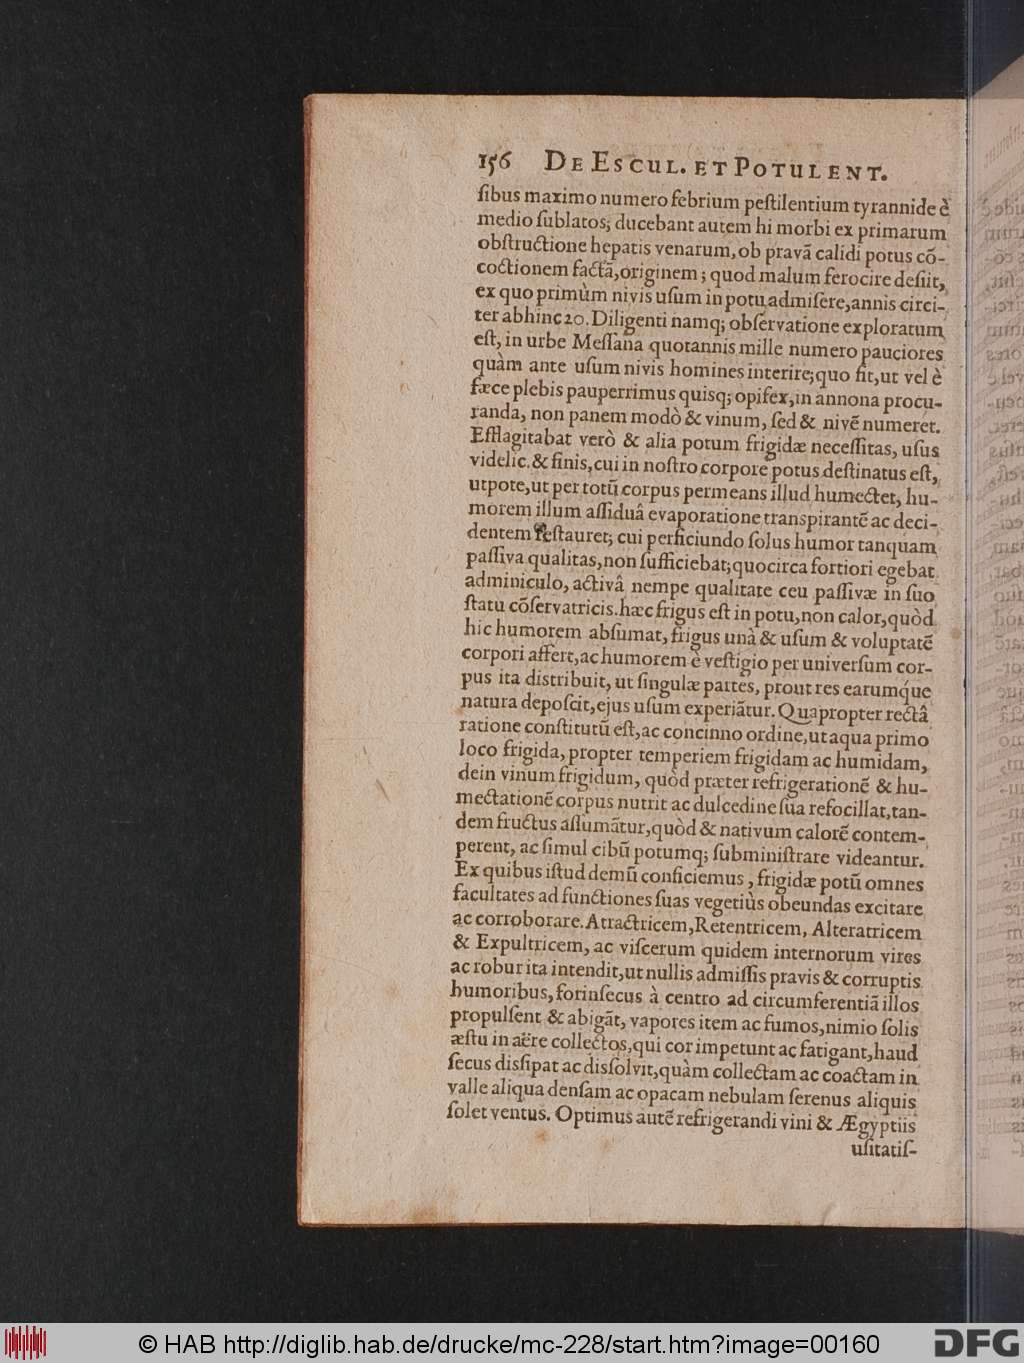 156 DE ESCUL. ET POTULENT.
ſibus maximo numero febrium peſtilentium tyrannide è
medio ſublatos; ducebant autem hi morbi ex primarum
obſtructione hepatis venarum, ob pravã calidi potus cõ-
coctionem factã, originem; quod malum ferocire deſiit,
ex quo primùm nivis uſum in potu admiſere, annis circi-
ter abhinc 20. Diligenti namq; obſervatione exploratum
eſt, in urbe Meſſana quotannis mille numero pauciores
quàm ante uſum nivis homines interire; quo fit, ut vel è
fæce plebis pauperrimus quisq; opifex, in annona procu-
randa, non panem modò & vinum, ſed & nivẽ numeret.
Efflagitabat verò & alia potum frigidæ neceſſitas, uſus
videlic. & finis, cui in noſtro corpore potus deſtinatus eſt,
utpote, ut per totũ corpus permeans illud humectet, hu-
morem illum aſſiduâ evaporatione transpirantẽ ac deci-
dentem reſtauret; cui perficiundo ſolus humor tanquam
paſſiva qualitas, non ſufficiebat; quocirca fortiori egebat
adminiculo, activâ nempe qualitate ceu paſſivæ in ſuo
ſtatu cõſervatricis. hæc frigus eſt in potu, non calor, quòd
hic humorem abſumat, frigus unà & uſum & voluptatẽ
corpori affert, ac humorem è veſtigio per univerſum cor-
pus ita distribuit, ut ſingulæ partes, prout res earumq́ue
natura depoſcit, ejus uſum experiãtur. Quapropter rectâ
ratione conſtitutũ eſt, ac concinno ordine, ut aqua primo
loco frigida, propter temperiem frigidam ac humidam,
dein vinum frigidum, quòd præter refrigerationẽ & hu-
mectationẽ corpus nutrit ac dulcedine ſua refocillat, tan-
dem fructus aſſumãtur, quòd & nativum calorẽ contem-
perent, ac ſimul cibũ potumq; ſubminiſtrare videantur.
Ex quibus iſtud demũ conficiemus, frigidæ potũ omnes
facultates ad functiones ſuas vegetiùs obeundas excitare
ac corroborare. Atractricem, Retentricem, Alteratricem
& Expultricem, ac viſcerum quidem internorum vires
ac robur ita intendit, ut nullis admiſſis pravis & corruptis
humoribus, forinſecus à centro ad circumferentiã illos
propulſent & abigãt, vapores item ac fumos, nimio ſolis
æſtu in aëre collectos, qui cor impetunt ac fatigant, haud
ſecus disſipat ac disſolvit, quàm collectam ac coactam in
valle aliqua denſam ac opacam nebulam ſerenus aliquis
ſolet ventus. Optimus autẽ refrigerandi vini & Ægyptiis
uſitatiſ-
© HAB http://diglib.hab.de/drucke/mc-228/start.htm?image=00160
DFG